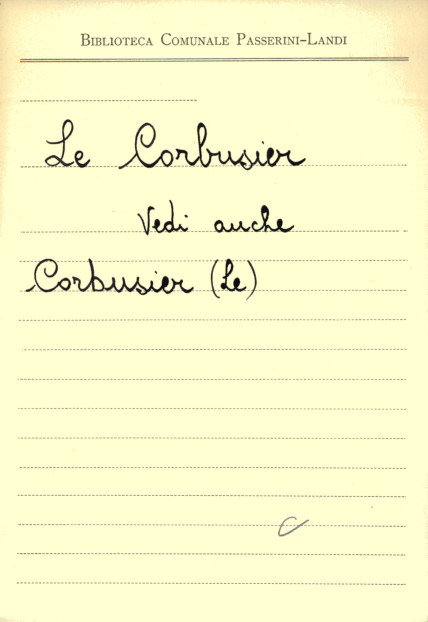 Biblioteca Comunale Passerini-Landi
Le Corbusier
Vedi anche
Corbusier (Le)
C